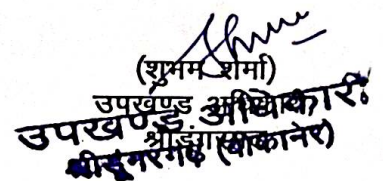 (शुभम शर्मा)
उपखण्ड अधिकारी
उपखण्ड अधिकारी
श्रीडूंगरगढ़
श्रीडूंगरगढ़ (बीकानेर)